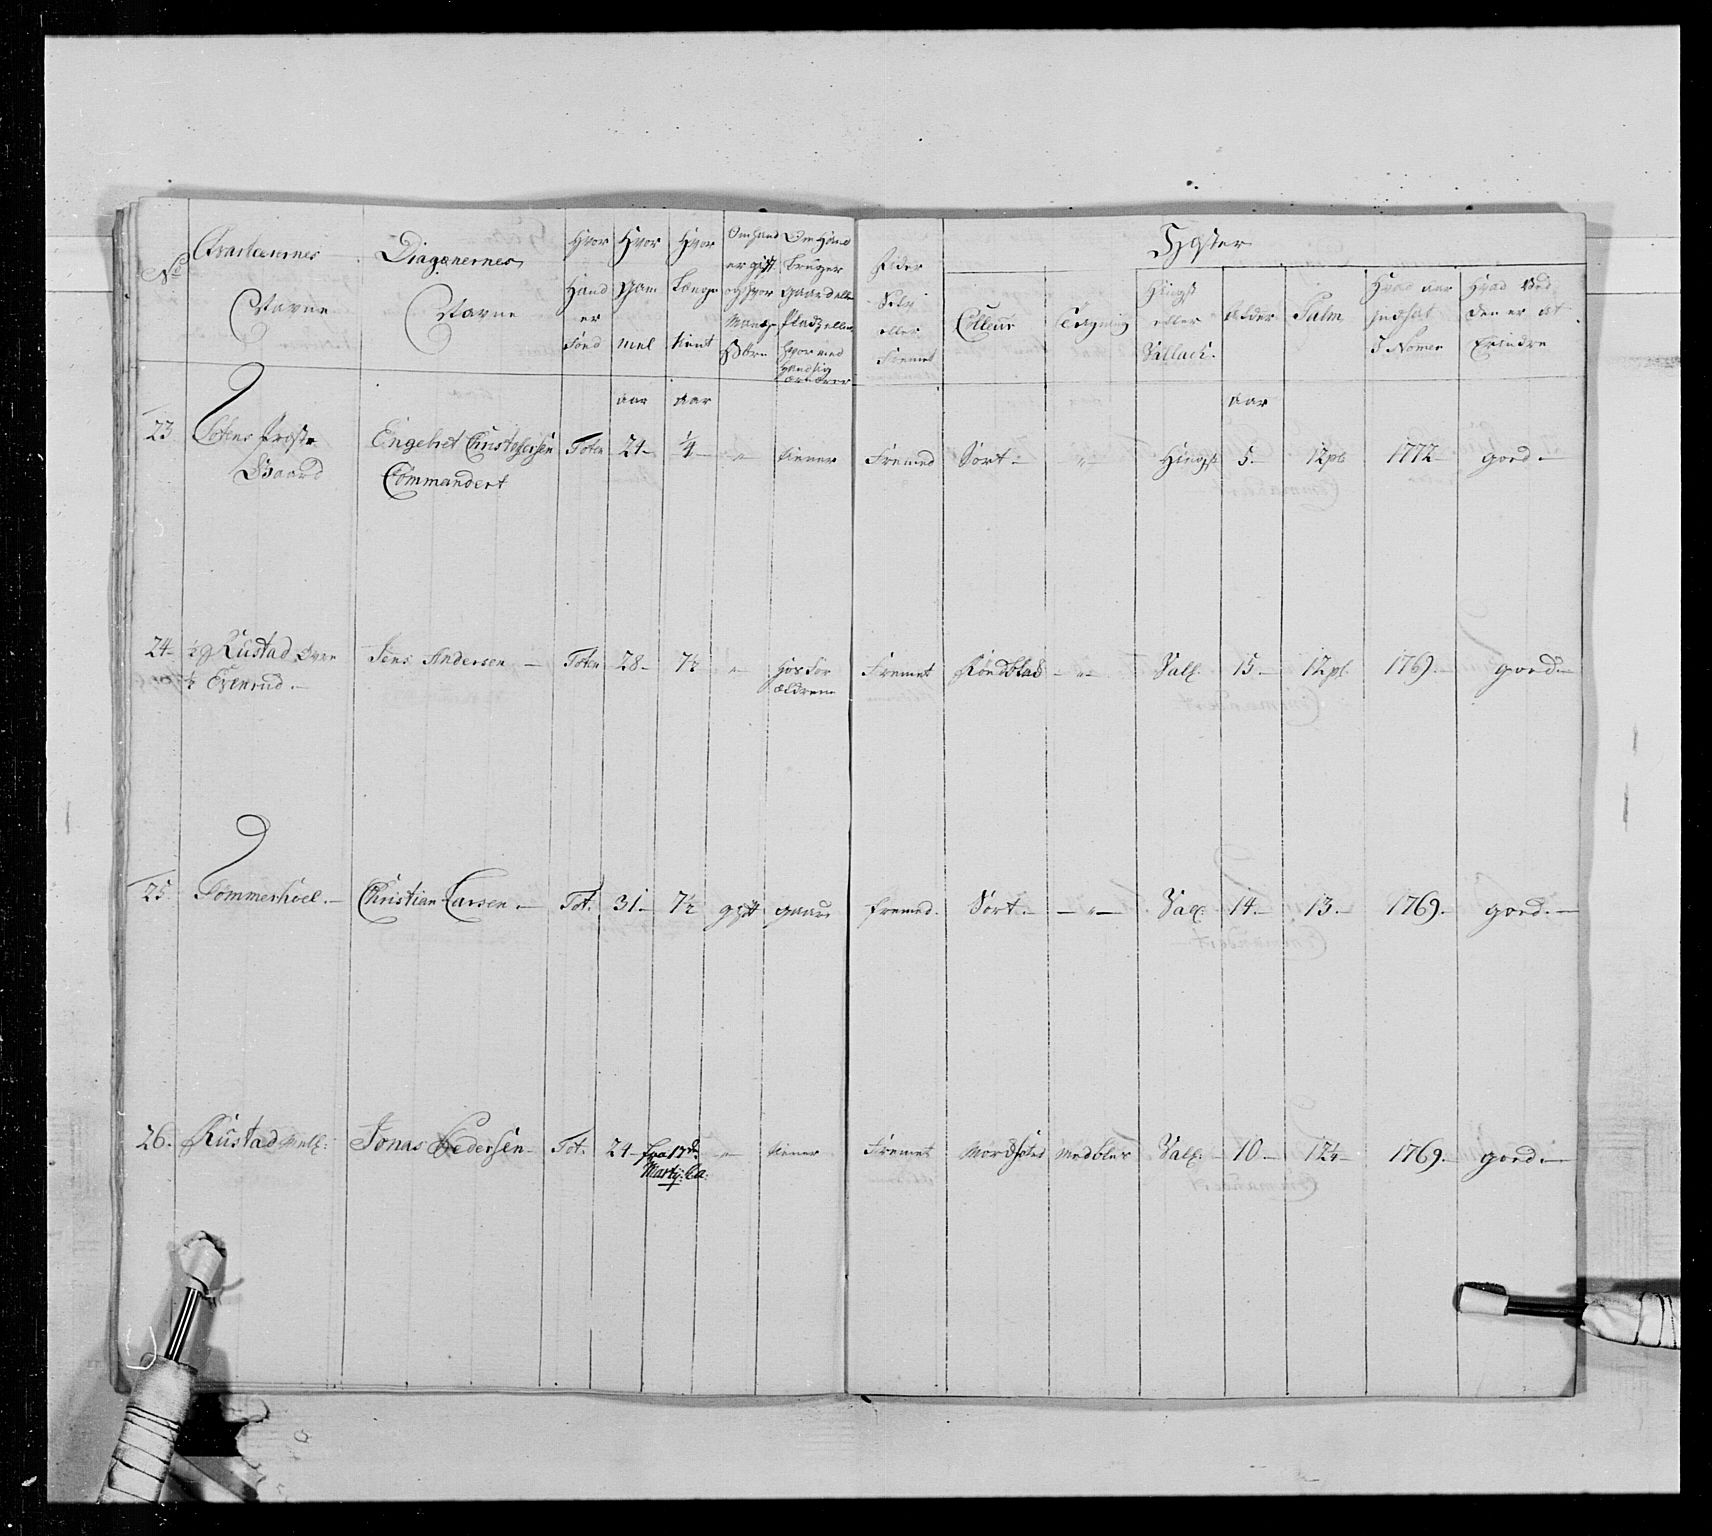 No
Qvarteerernes
Navne
Dragonernes
Navne
Hvor
Hand
er
Fønd
Hvor
Gam
mel
Hvor
Længe
tient
Om Hand
er gift
og hvor
Mange
Børn
Om Hand
bruger
Gaard eller
Pladz eller
hvormed
Hand sig
ernærer
Rider
Selv
eller
Fremet
Hæster
Colleur
Tegning
Hingst
eller
Vallach
Alder
Palm
Hvad aar
indsat
I Nomer
Hvad Ved
den er at
Erindre
aar aar aar
23 Totens Præste Gaard Engebret Christophersen Commandert Toten 24 1/4 " tiener Fremed Sort " Hingst 5 12 pl 1772 goed
24 1/2 Rustad Øvre 1/2 Evenrud Jens Andersen Toten 28 7 1/2 " hos For ældrene Fremet Rød " Val: 15 12 pl 1769 goed
25 Sommerhoel Christian Larsen Tot. 31 7 1/2 gift gaard fremed Sort " Val: 14 13 1769 goed
26 Rustad Jonas Pedersen Tot. 24 fra 13de Martij " tiener Fremet med blis Val: 10 12 1/2 1769 goed